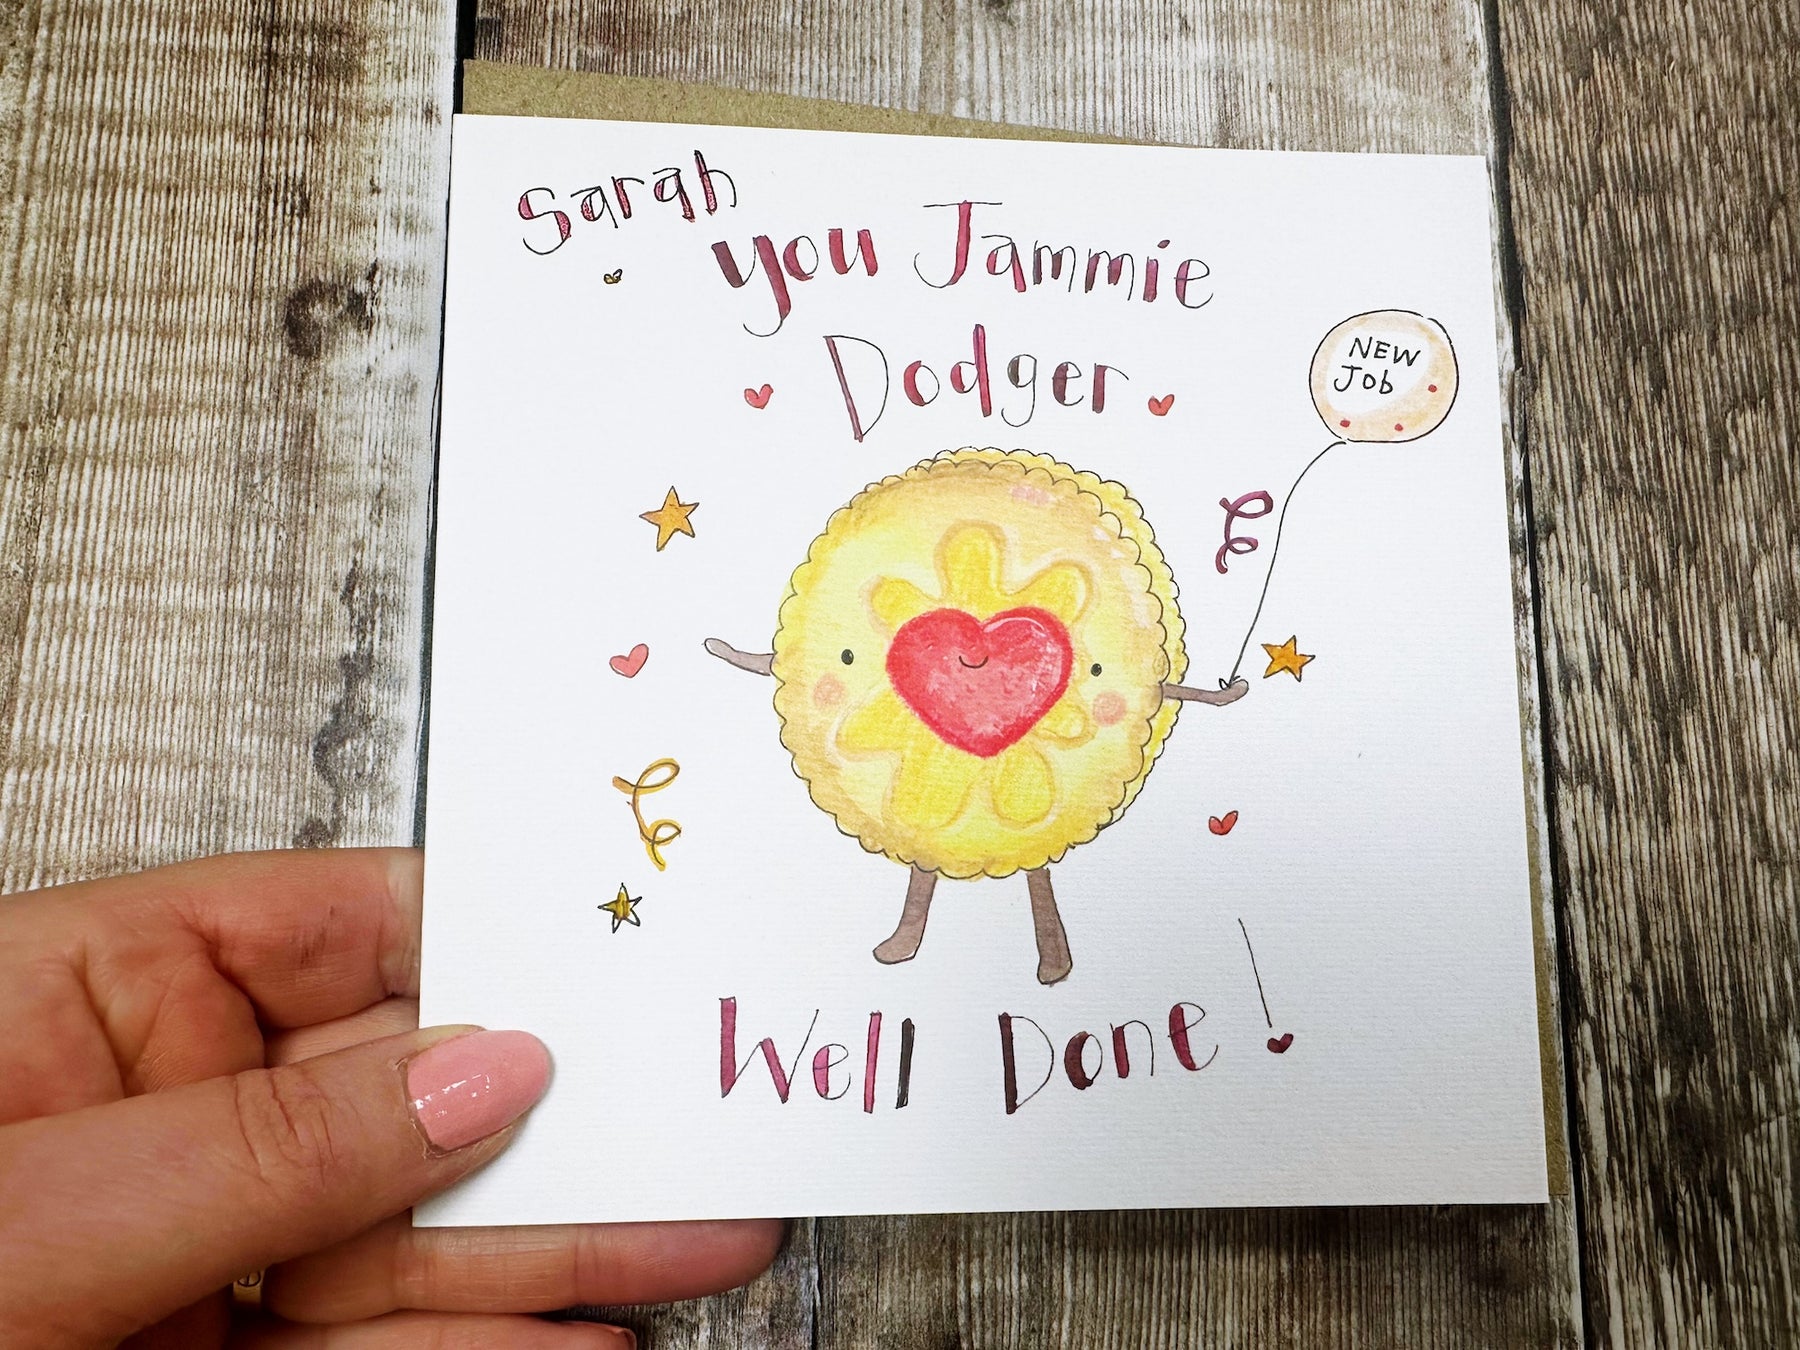 Sarah
you Jammie
Dodger
NEW
Job
Well Done!